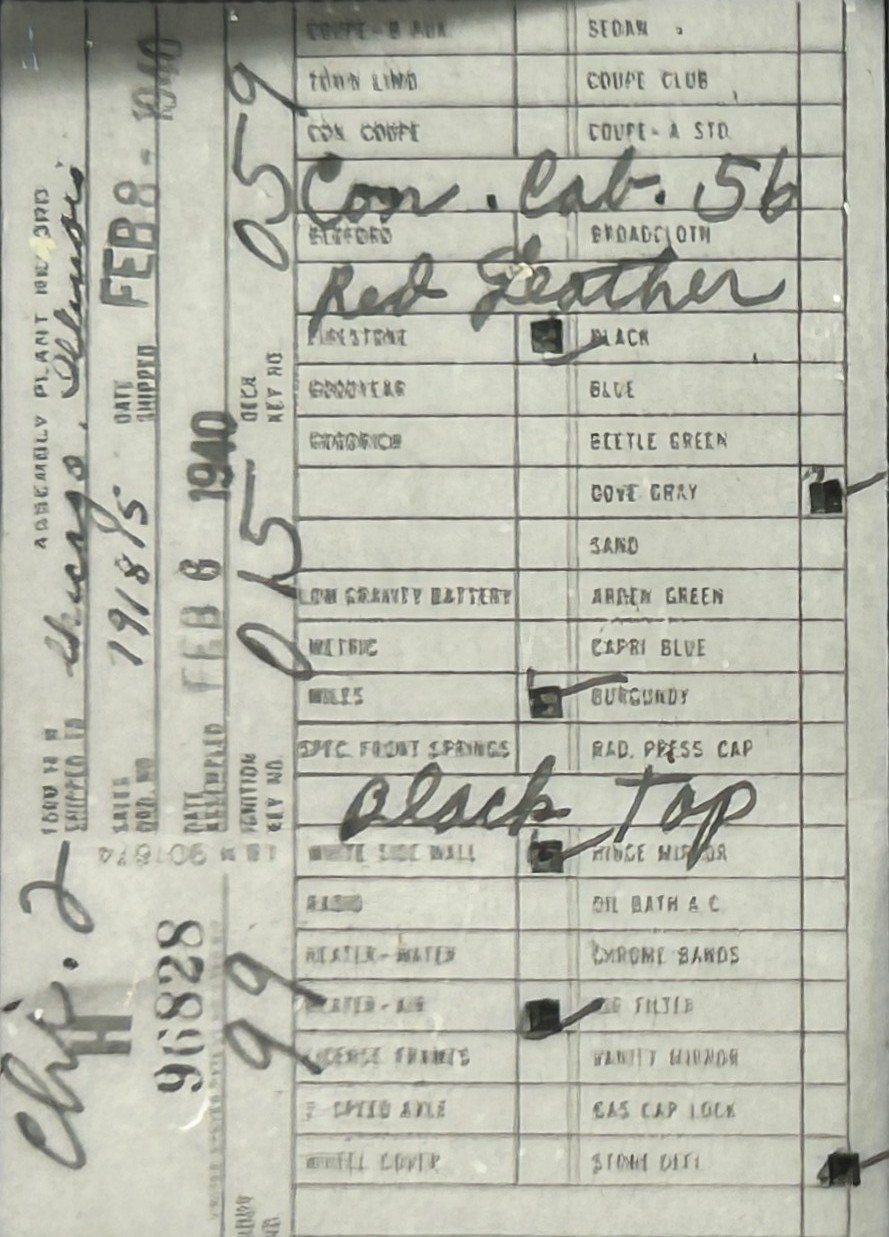 ASSEMBLY PLANT RECORD
SHIPPED TO Chicago, Illinois
SALES ORD. NO. 7918/5 DATE SHIPPED FEB 8 - 1940
DATE ASSEMBLED FEB 6 1940
IGNITION KEY NO. 015 DECK KEY NO. 059
Chi. 2
H
96828
99
COUPE - B AUX SEDAN
TOWN LIMO COUPE CLUB
CON COUPE COUPE - A STD
Con. Cab. 56
BEDFORD BROADCLOTH
Red Leather
FIRESTONE BLACK
GOODYEAR BLUE
GOODRICH BEETLE GREEN
DOVE GRAY
SAND
LOW GRAVITY BATTERY ARDEN GREEN
METRIC CAPRI BLUE
MILES BURGUNDY
SPEC. FRONT SPRINGS RAD. PRESS CAP
Black Top
WHITE SIDE WALL HINGE MIRROR
RADIO OIL BATH A C
HEATER - WATER CHROME BANDS
HEATER - AIR FILTER
LICENSE FRAMES VANITY MIRROR
2 SPEED AXLE GAS CAP LOCK
WHEEL COVER STONE DEFL